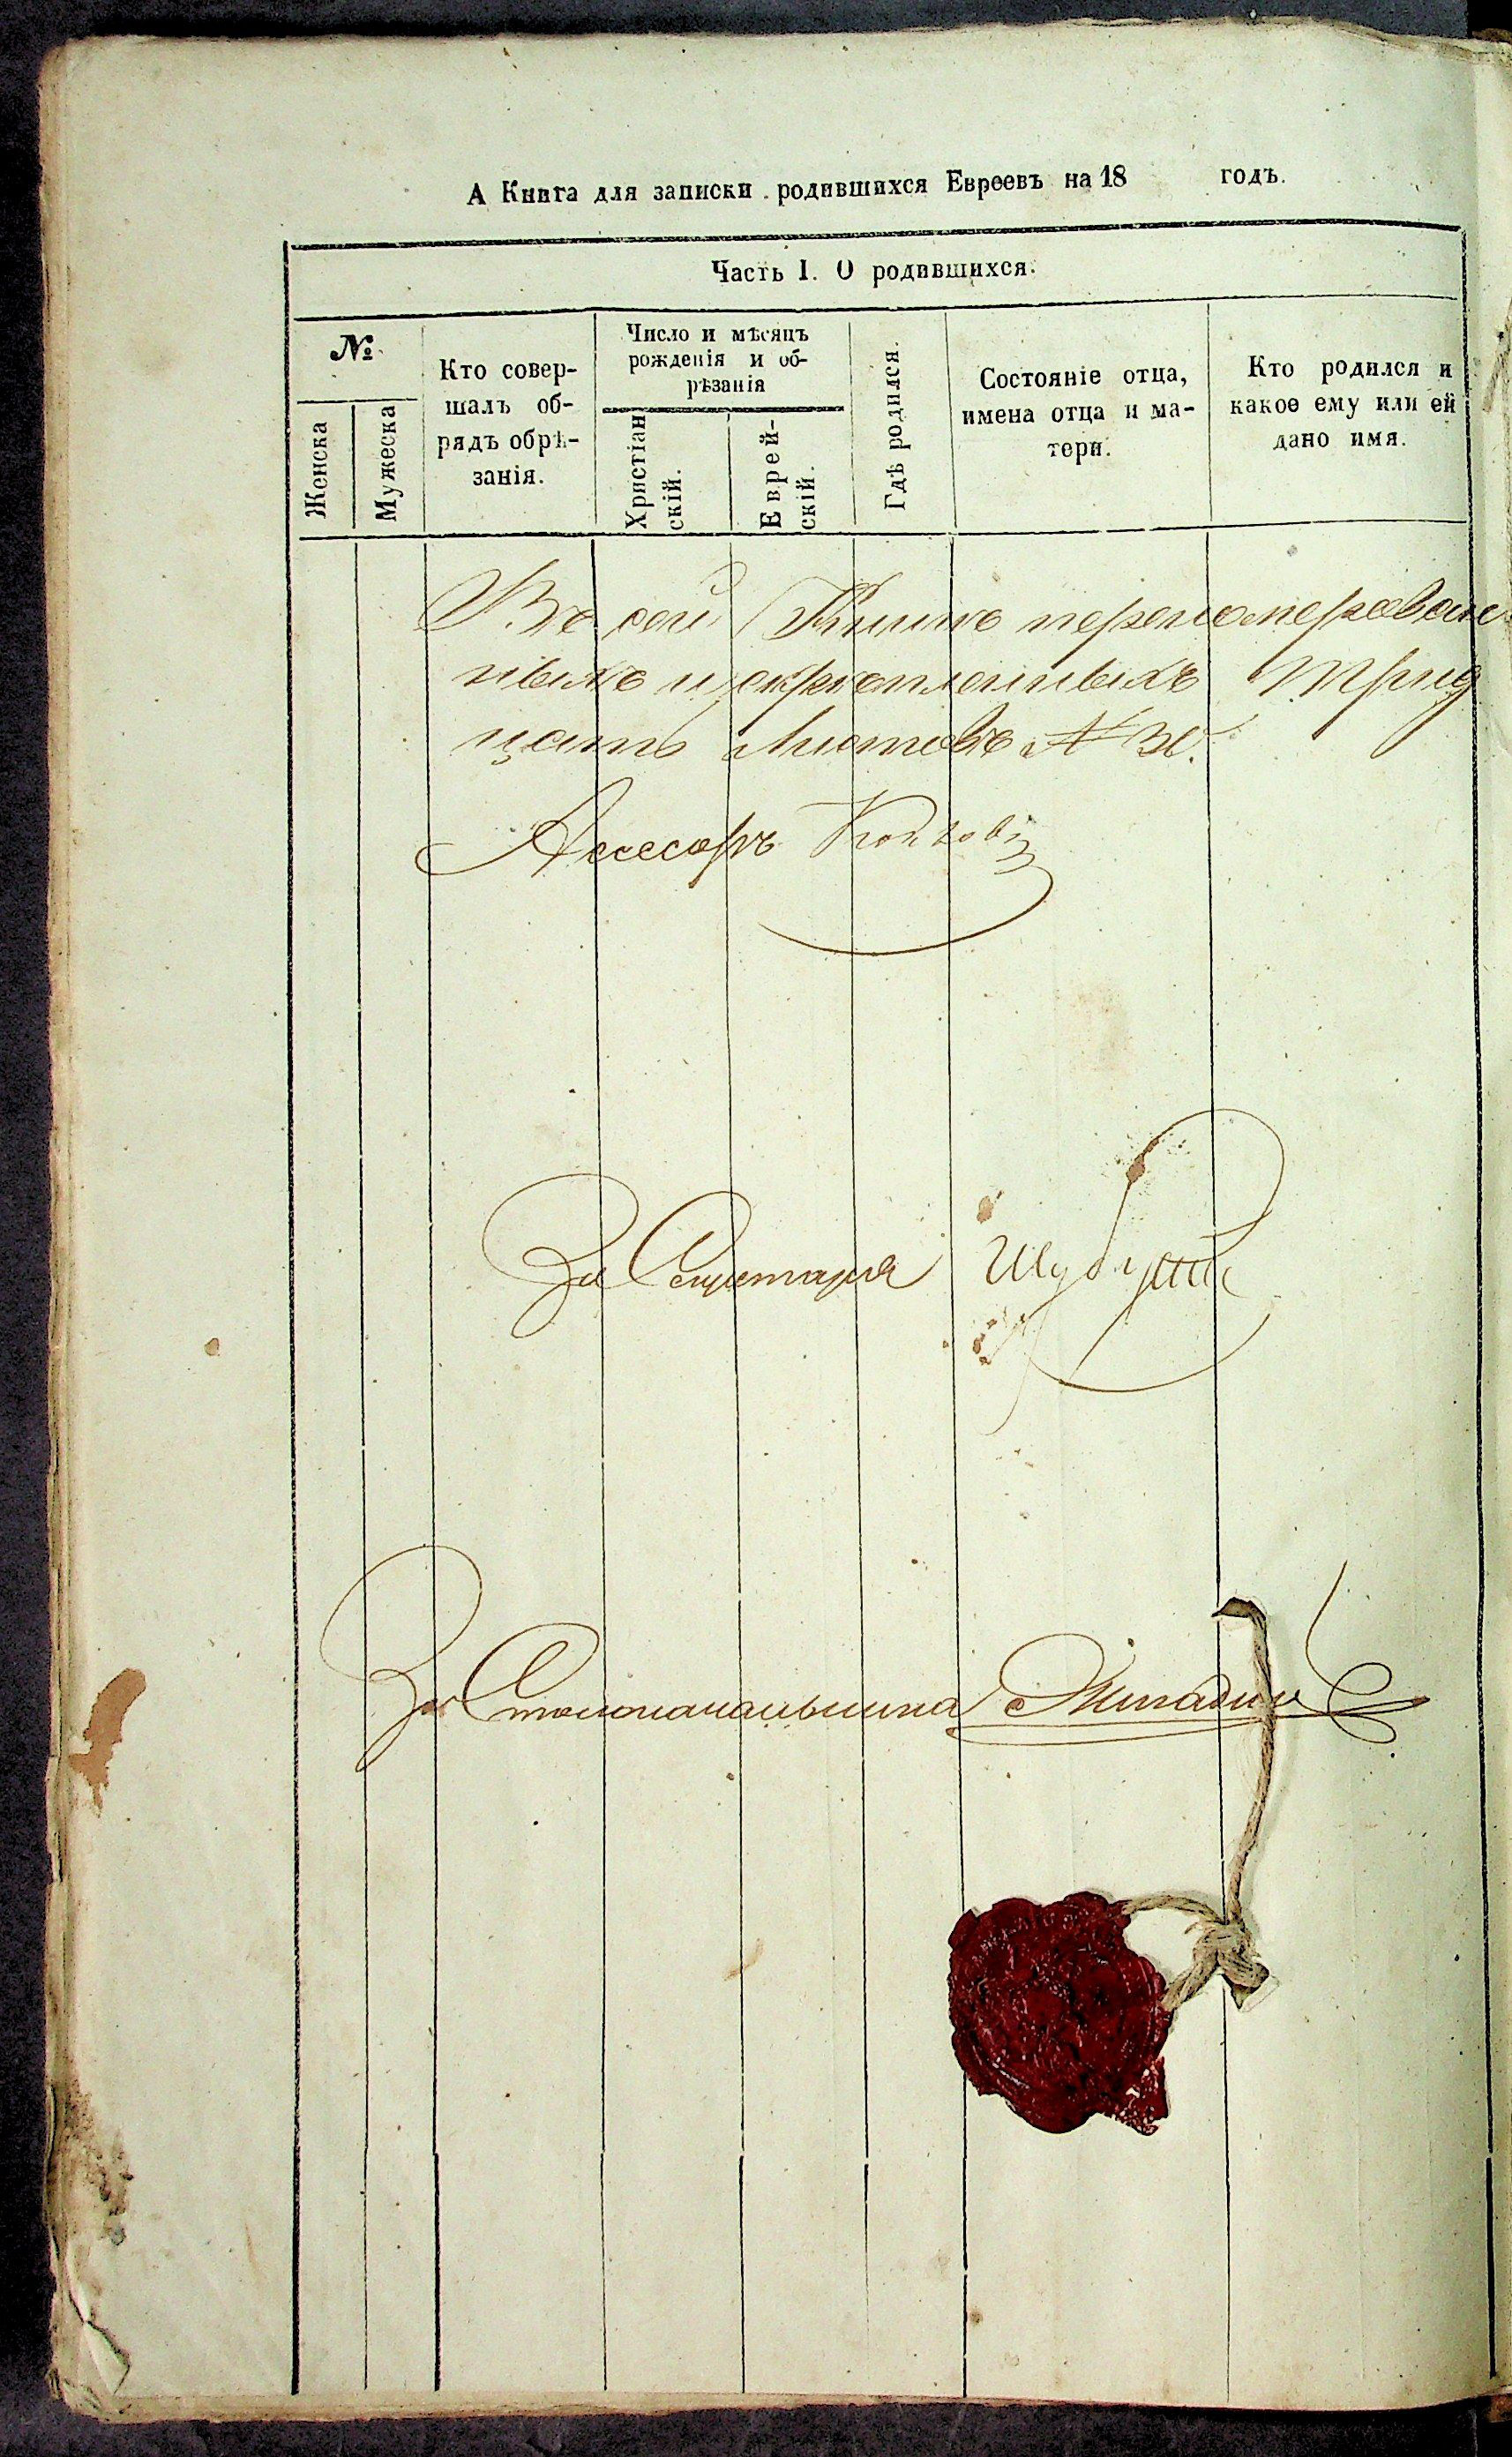 А Книга для записки родившихся Евреевъ на 18 годъ.
Часть I. О родившихся.
№
Женска
Мужеска
Кто совер-
шалъ об-
рядъ обрѣ-
занія.
Число и мѣсяцъ
рожденія и об-
рѣзанія
Христіан
скій.
Еврей-
скій.
Гдѣ родился.
Состояніе отца,
имена отца и ма-
тери.
Кто родился и
какое ему или ей
дано имя.
Въ сей Книгѣ перенумерован
ныхъ и скрѣпленныхъ трид
цать листовъ № 30.
Ассесоръ
За Секретаря
За Столоначальника